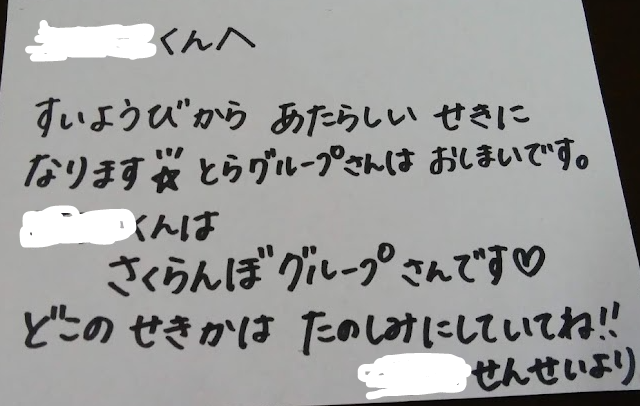 くんへ
すいようびから あたらしい せきに
なります☆ とらグループさんは おしまいです。
くんは
さくらんぼグループさんです♡
どこの せきかは たのしみにしていてね!!
せんせいより